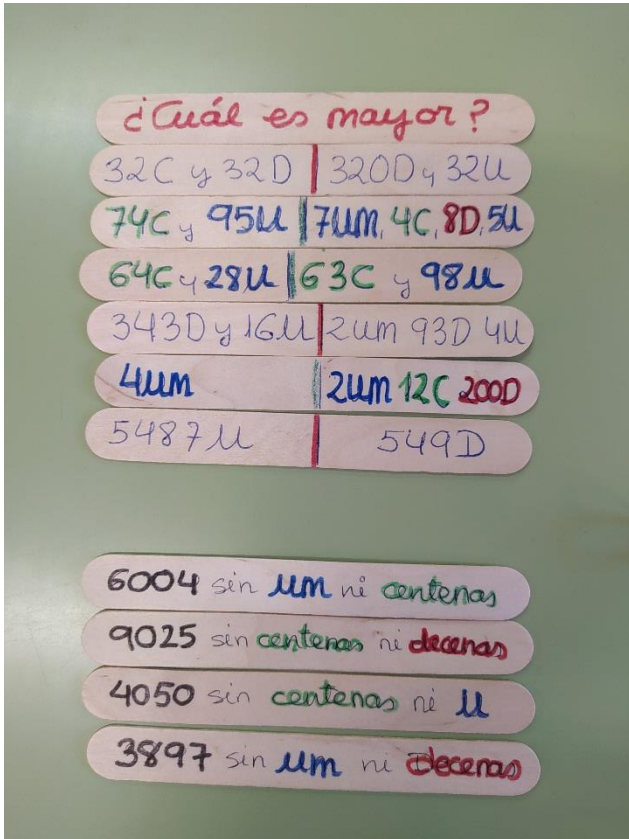 ¿Cuál es mayor?
32C y 32D | 320D y 32U
74C y 95U | 7UM, 4C, 8D, 5U
64C y 28U | 63C y 98U
343D y 16U | 2UM 93D 4U
4UM | 2UM 12C 200D
5487U | 549D
6004 sin UM ni centenas
9025 sin centenas ni decenas
4050 sin centenas ni U
3897 sin UM ni decenas